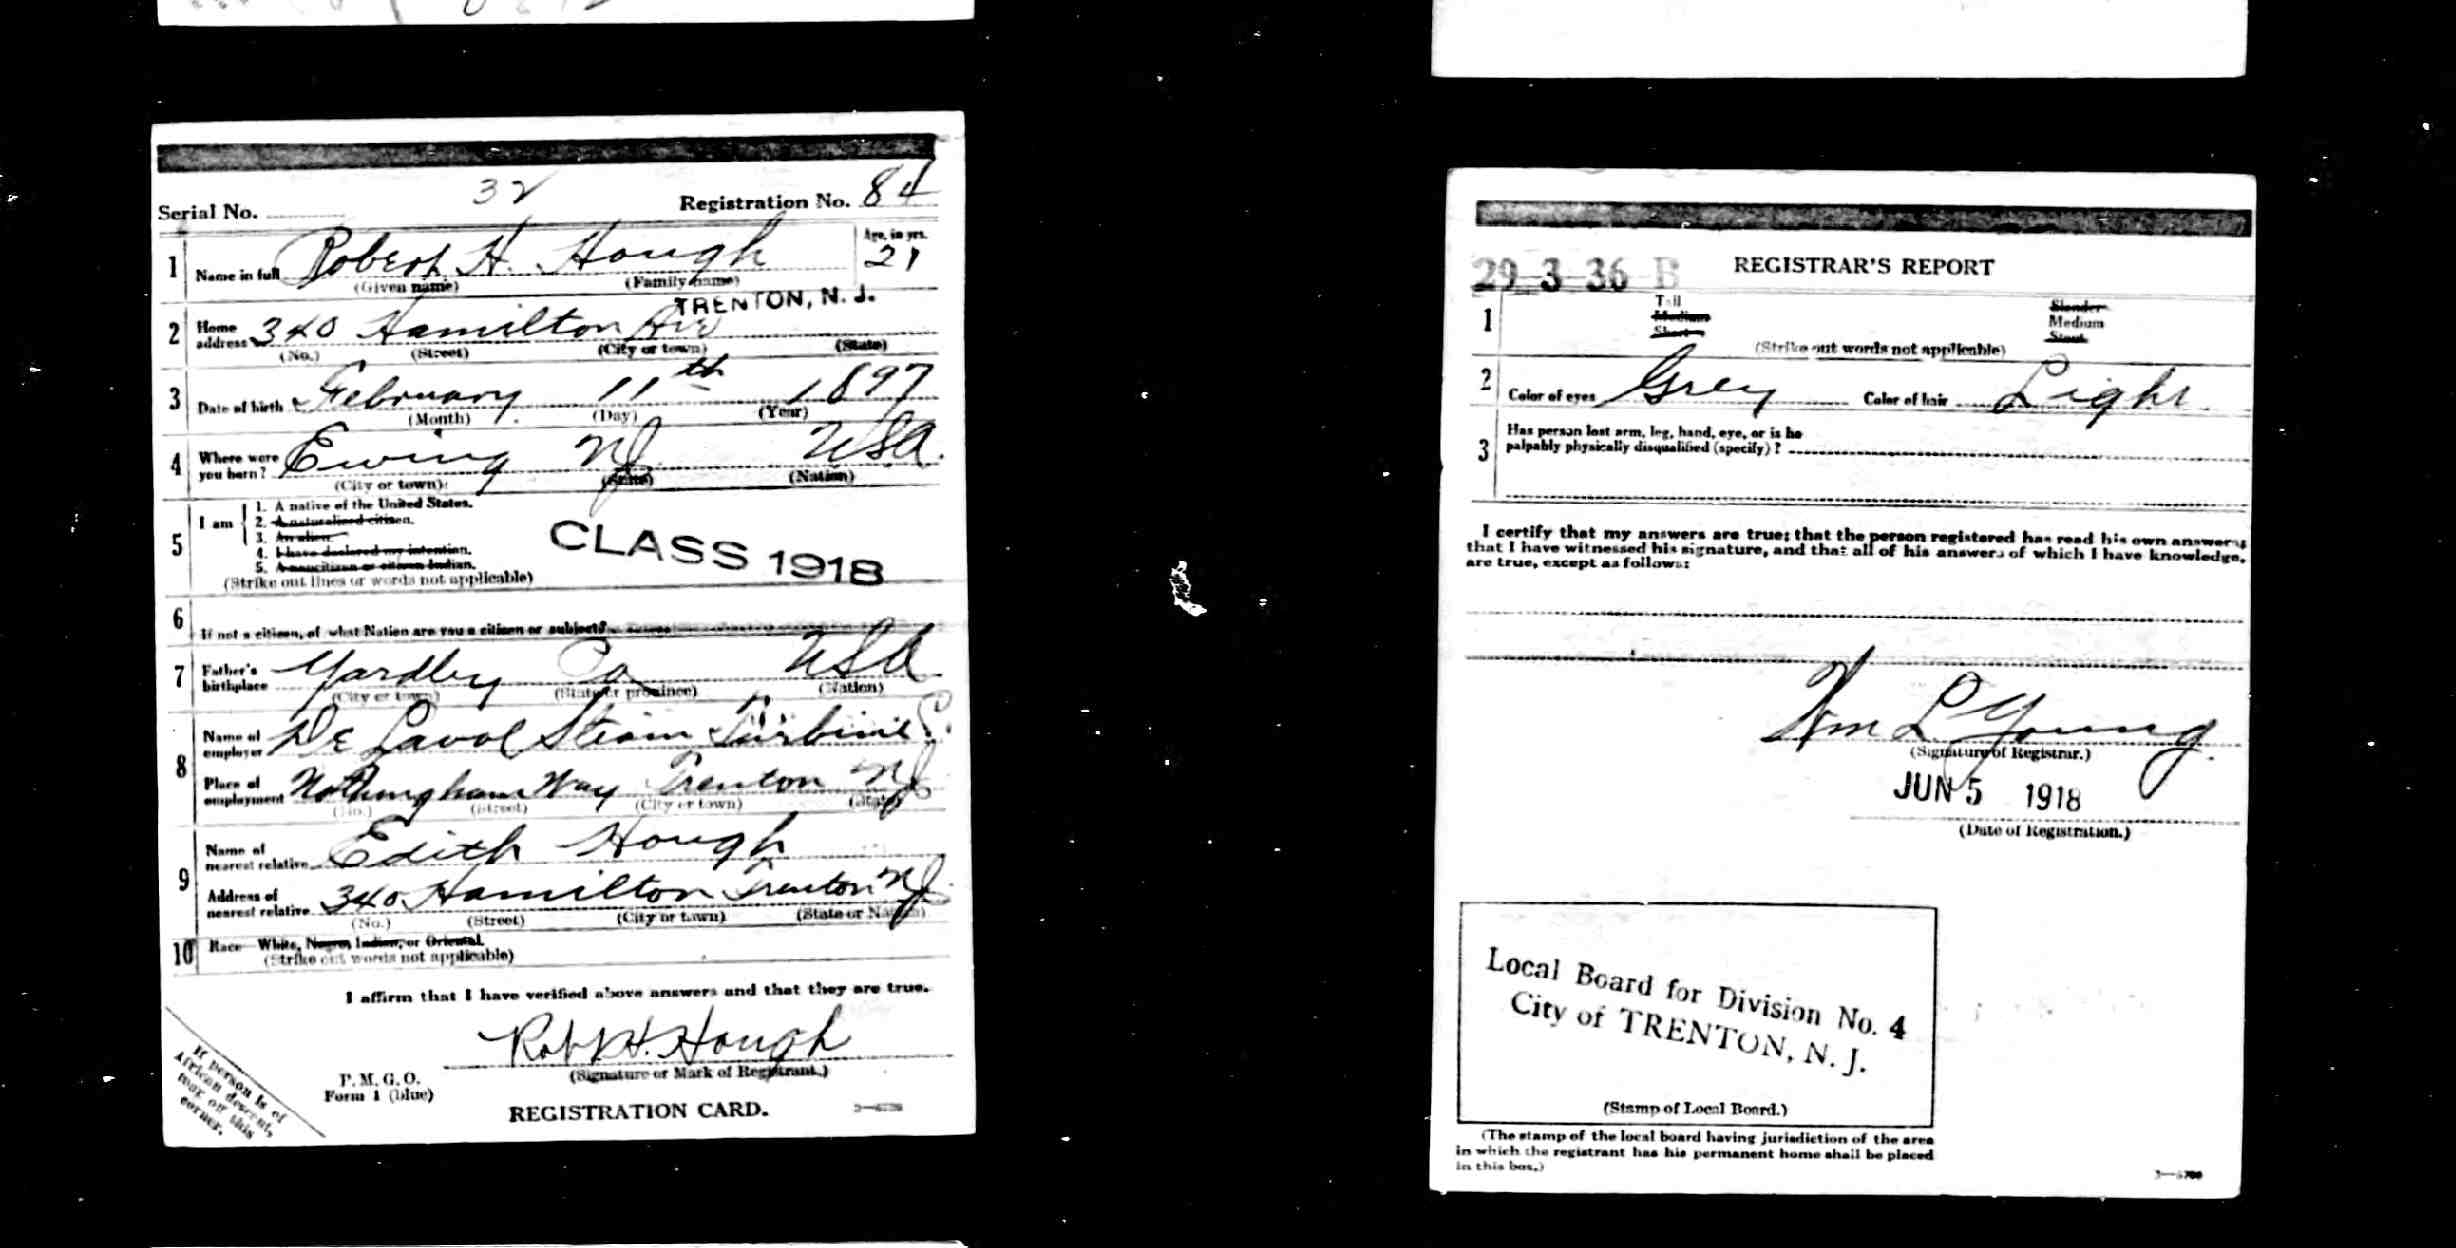 32
Serial No. Registration No. 84
1 Name in full Robert H. Hough Age, in yrs. 21
(Given name) (Family name)
TRENTON, N. J.
2 Home address 340 Hamilton Ave
(No.) (Street) (City or town) (State)
3 Date of birth February 11th 1897
(Month) (Day) (Year)
4 Where were you born? Ewing NJ USA.
(City or town) (State) (Nation)
5 I am
1. A native of the United States.
2. A naturalized citizen.
3. An alien.
4. I have declared my intention.
5. A noncitizen or citizen Indian.
(Strike out lines or words not applicable)
CLASS 1918
6 If not a citizen, of what Nation are you a citizen or subject?
7 Father's birthplace Yardley Pa USA
(City or town) (State or province) (Nation)
8 Name of employer De Laval Steam Turbine Co.
Place of employment Nottingham Way Trenton NJ
(No.) (Street) (City or town) (State)
9 Name of nearest relative Edith Hough
Address of nearest relative 340 Hamilton Trenton NJ.
(No.) (Street) (City or town) (State or Nation)
10 Race White, Negro, Indian, or Oriental.
(Strike out words not applicable)
I affirm that I have verified above answers and that they are true.
Robt H. Hough
(Signature or Mark of Registrant.)
P. M. G. O.
Form 1 (blue)
REGISTRATION CARD.
If person is of
African descent,
tear off this
corner.
29 3 36 B REGISTRAR'S REPORT
1 Tall Slender
Medium Medium
Short Stout
(Strike out words not applicable)
2 Color of eyes Grey Color of hair Light
3 Has person lost arm, leg, hand, eye, or is he
palpably physically disqualified (specify)?
I certify that my answers are true; that the person registered has read his own answers;
that I have witnessed his signature, and that all of his answers of which I have knowledge,
are true, except as follows:
Wm L Young
(Signature of Registrar.)
JUN 5 1918
(Date of Registration.)
Local Board for Division No. 4
City of TRENTON, N. J.
(Stamp of Local Board.)
(The stamp of the local board having jurisdiction of the area
in which the registrant has his permanent home shall be placed
in this box.)